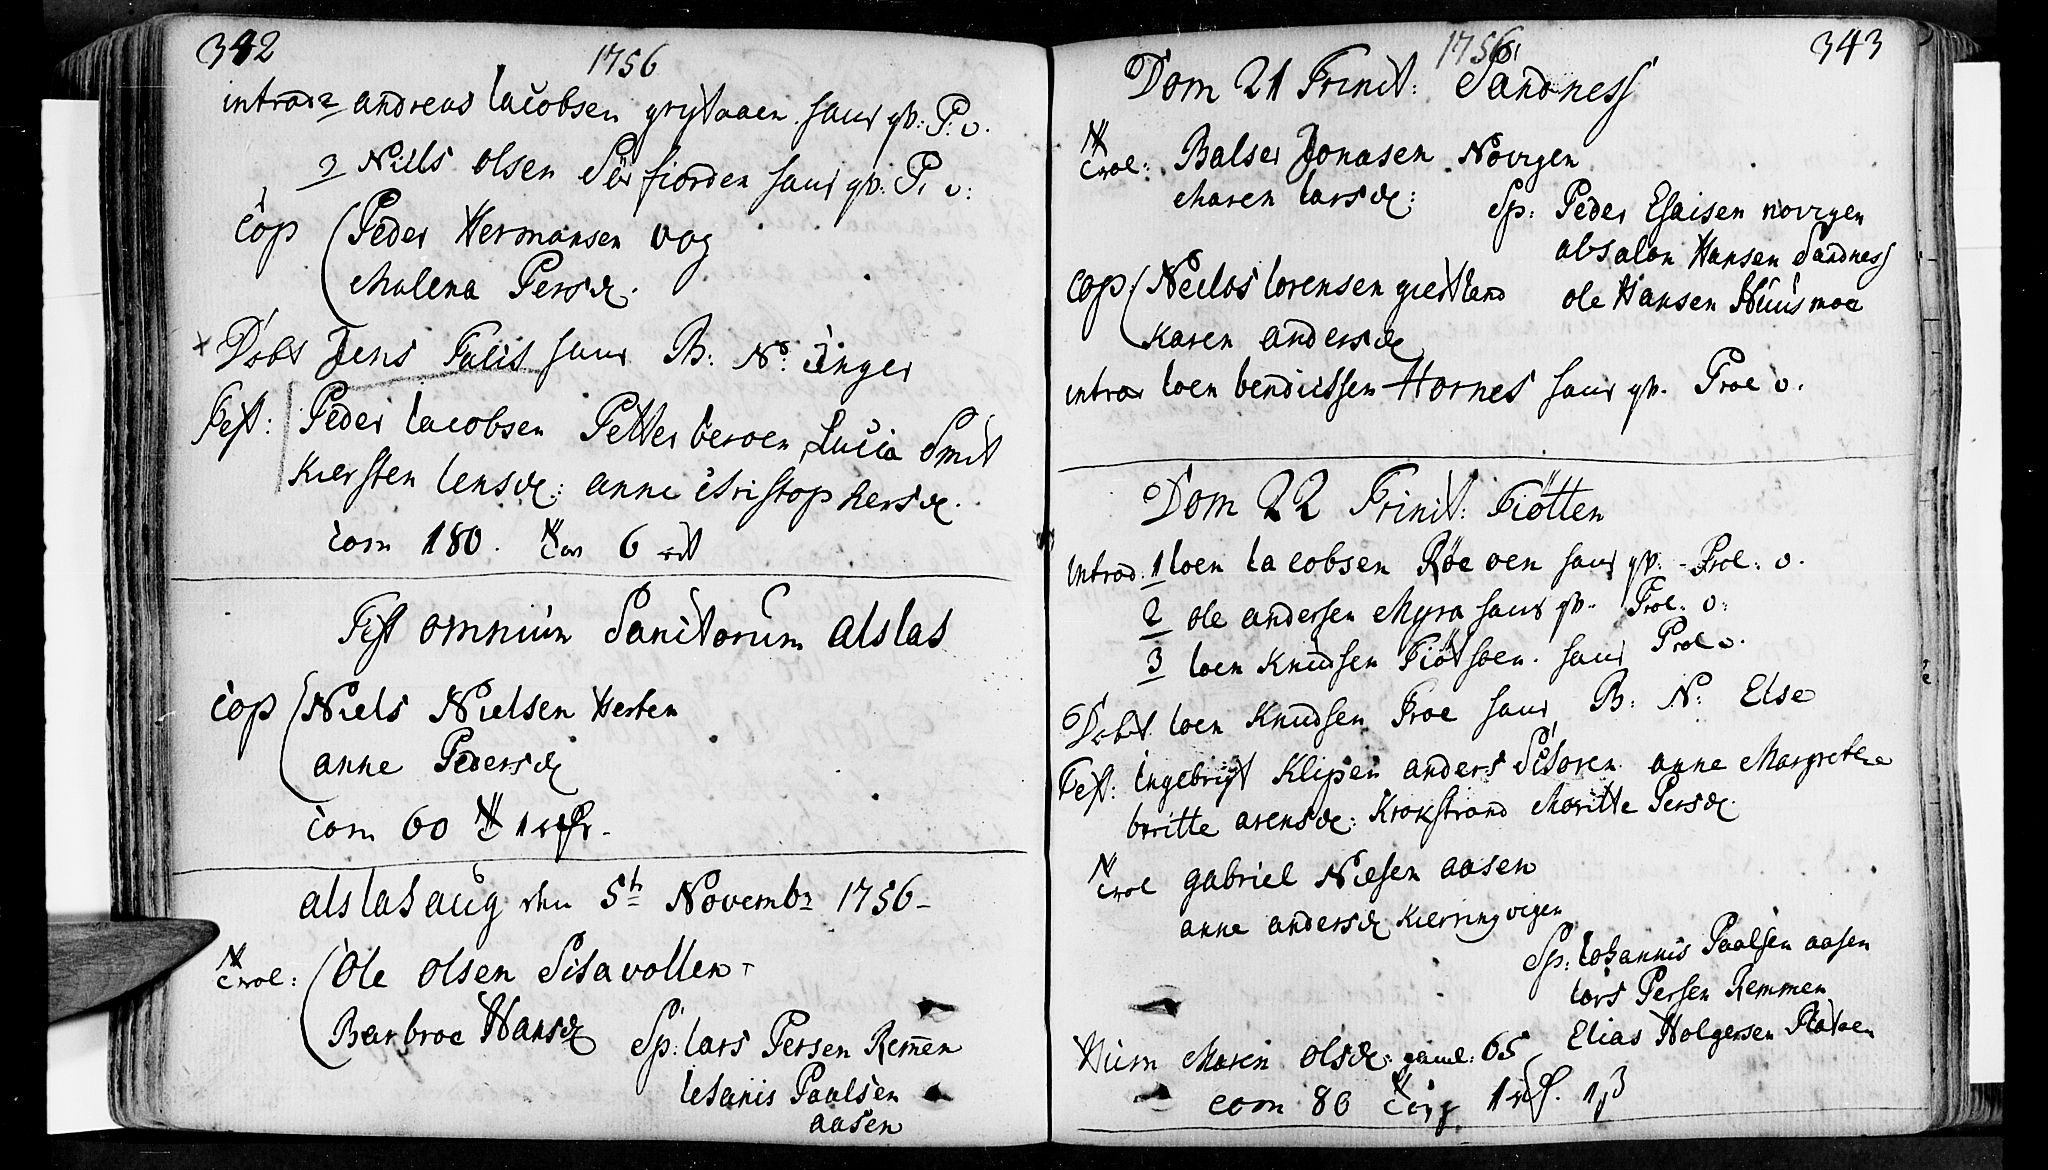 342
1756
introd 2 andreas Iacobsen grytaaen haus qv: P. v.
3 Niels olsen Sörfiorden haus qv: P. v:
Cop Peder Hermansen vog
Malena Persd.
Döbt Jens Falis haus B: N: inger
Test: Peder Iacobsen Petter beroen, Lucia Smit
Kiersten Iensd: anne Christophersd.
Com 180. 6
Fest omnium Sanctorum alstas
Cop Niels Nielsen Herten
anne Pedersd
Com 60 1
alstahaug den 5th Novembr 1756
Trol: Ole olsen Sisavollen
Barbroe Hansd
Sp: Lars Persen Remen
Iohanis Paalsen
aasen
343
1756
Dom 21 Trinit: Sandness
Trol: Balser Jonasen Novigen
Maren Larsd:
Sp: Peder Esaisen novigen
absalon Hansen Sandness
ole Hansen Huusmoe
Cop Neilos Lorensen giestland
Karen andersd
introd Ioen bendicssen Hornes haus qv. Proe v.
Dom 22 Trinit: Tiötten
Introd. 1 Ioen Iacobsen Röe öen haus qv: Prol: v.
2 ole andersen Myra haus qv. Prol: v:
3 Ioen Knudsen Tiötsoen. haus Prol v.
Döbt Ioen Knudsen Troe haus B: N: Else
Test: Ingebrigt Klipen anders Sisoren anne Margrethe
beritte arensd: Krokstrand Maritte Persd.
Trol gabriel Nielsen aasen
anne andersd Kierringvigen
Sp: Iohannis Paalsen aasen
Lars Persen Remmen
Elias Holgersen
Hum Maren olsd: gaml: 65
Com 80 1